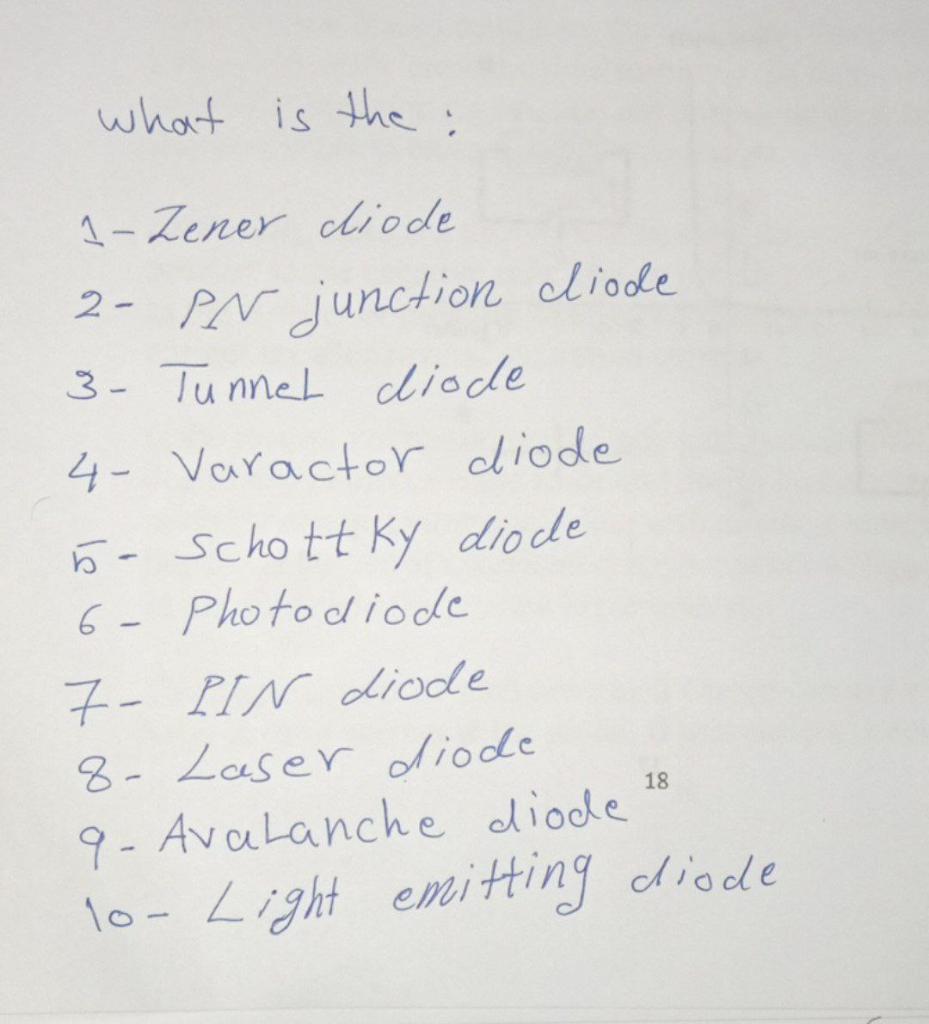 what is the :
1- Zener diode
2- PN junction diode
3- Tunnel diode
4- Varactor diode
5- Schottky diode
6- Photodiode
7- PIN diode
8- Laser diode
18
9- Avalanche diode
10- Light emitting diode